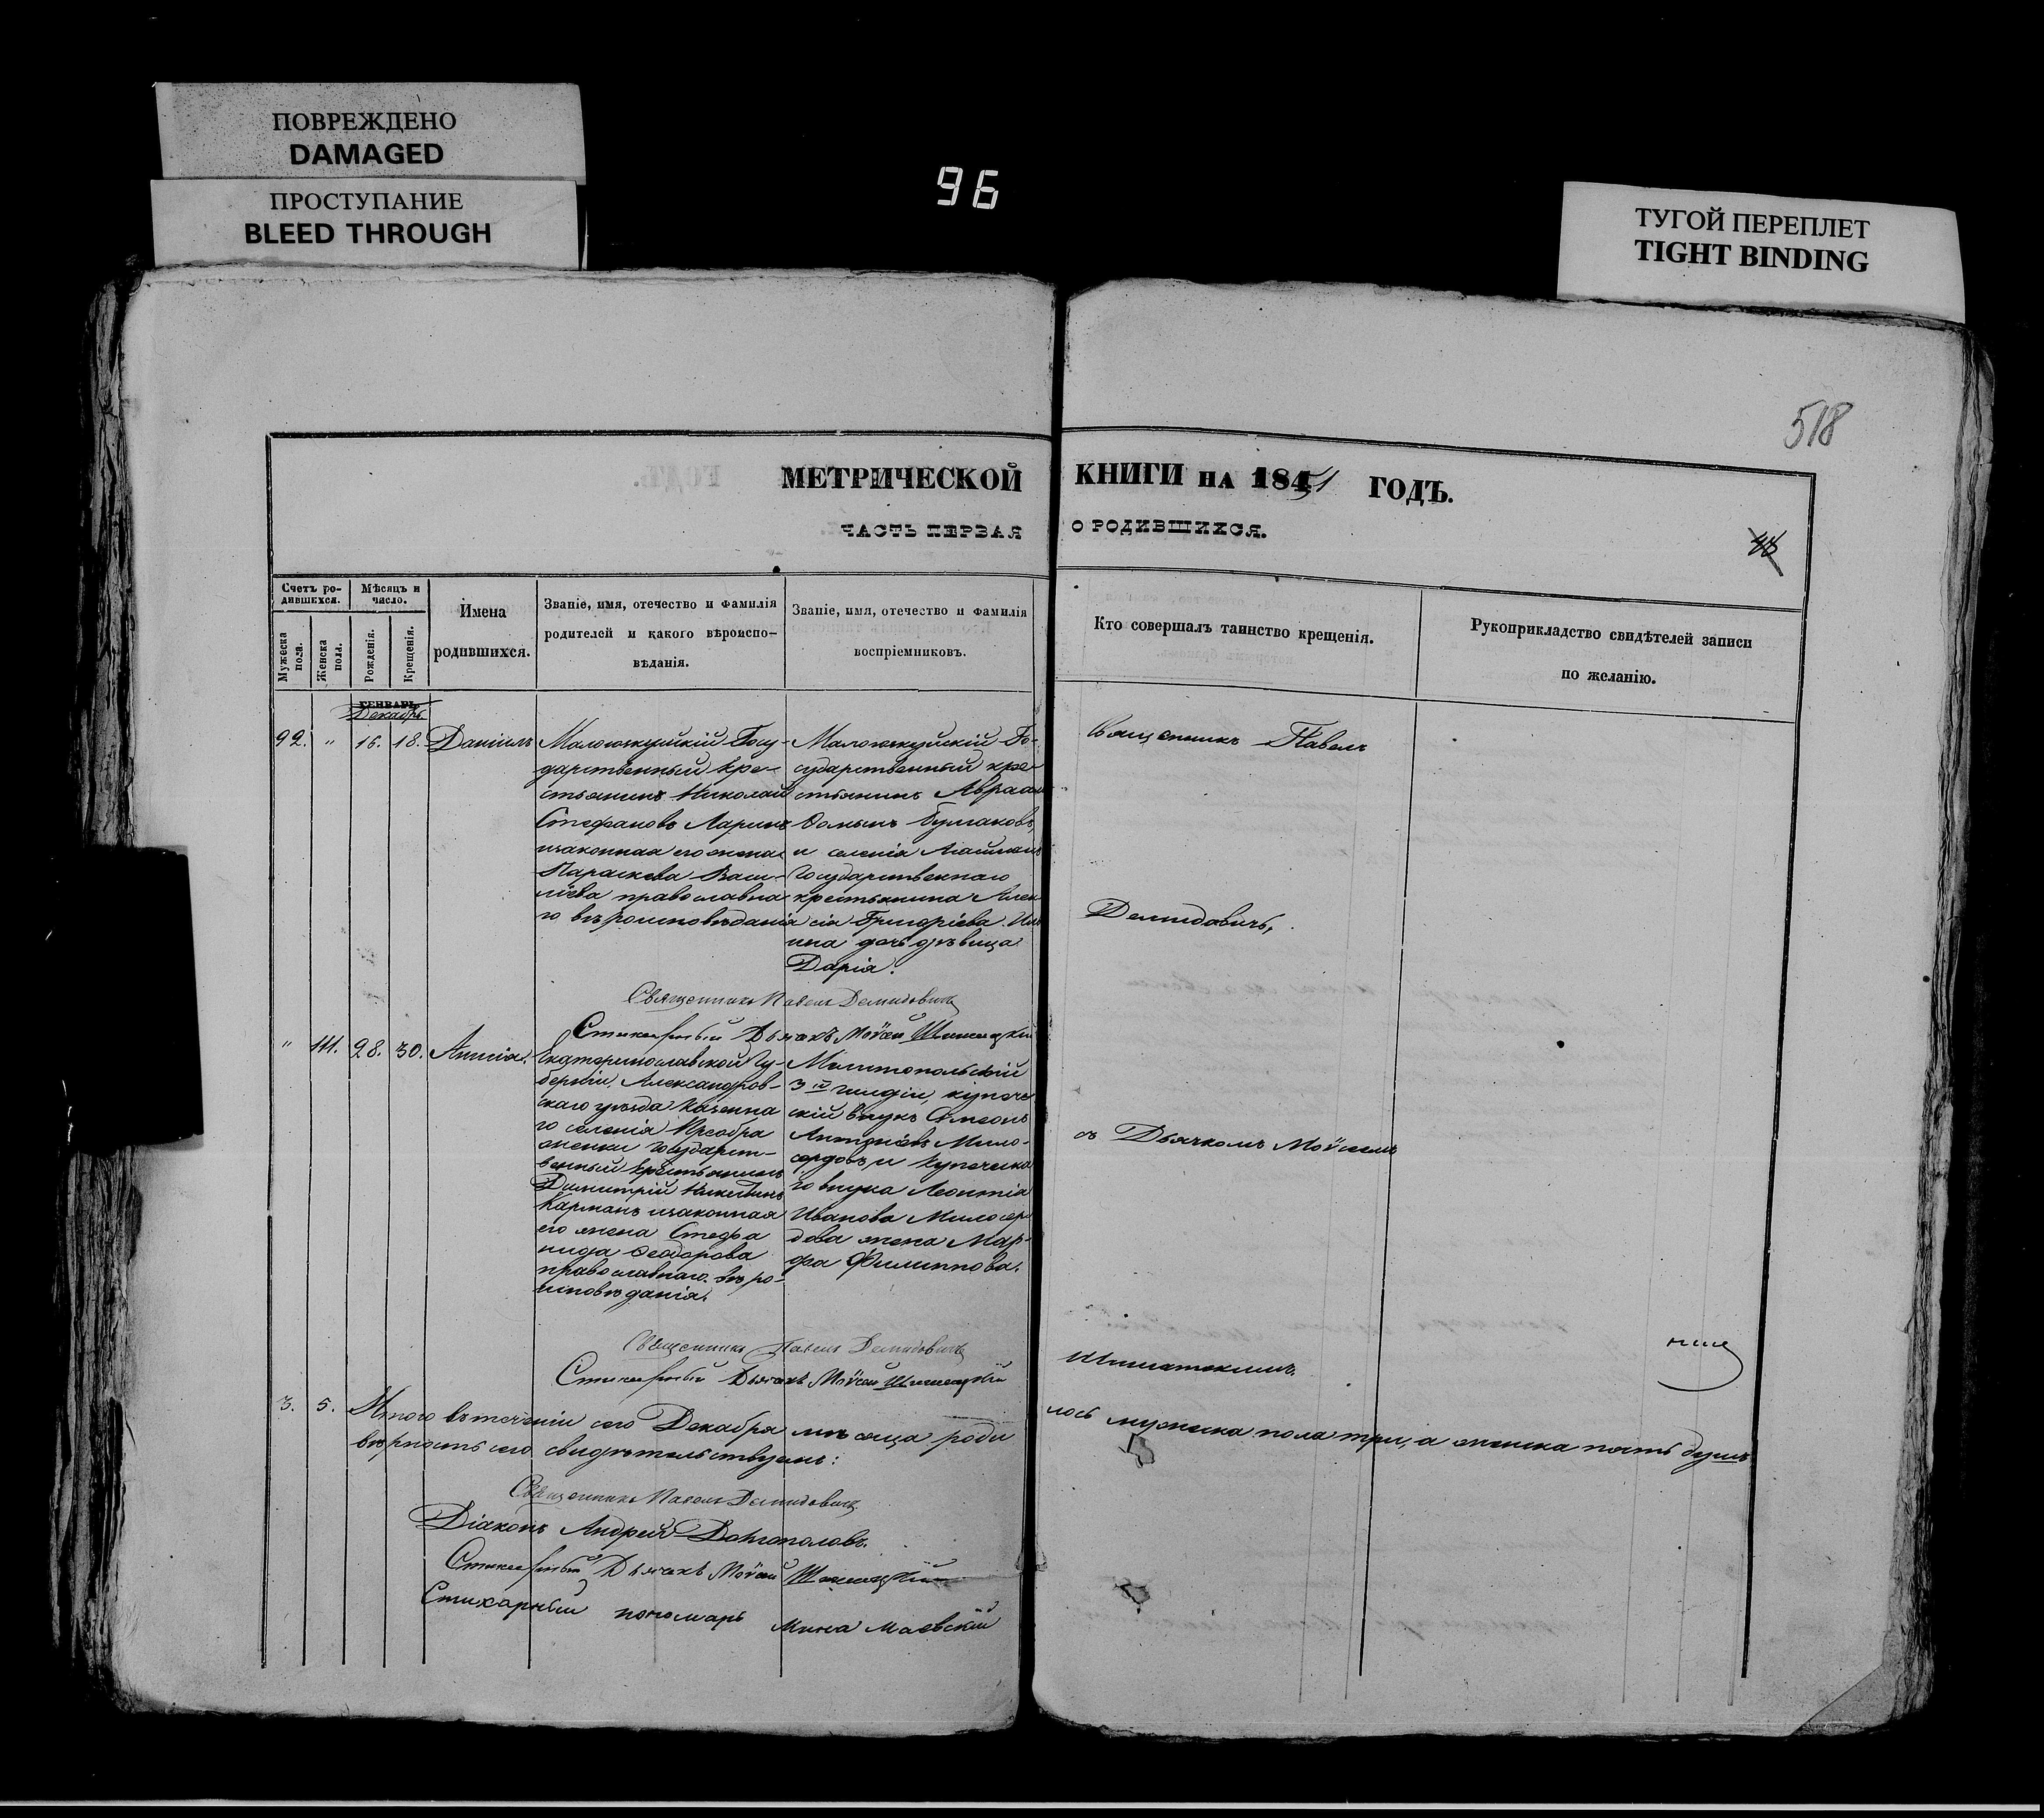 ПОВРЕЖДЕНО
DAMAGED
ПРОСТУПАНИЕ
BLEED THROUGH
96
ТУГОЙ ПЕРЕПЛЕТ
TIGHT BINDING
518
МЕТРИЧЕСКОЙ КНИГИ НА 1851 ГОДЪ.
ЧАСТЬ ПЕРВАЯ О РОДИВШИХСЯ.
Счетъ ро-
дившихся.
Мужеска пола.
Женска пола.
Мѣсяцъ и
число.
Рожденія.
Крещенія.
Имена
родившихся.
Званіе, имя, отечество и фамилія
родителей и какого вѣроиспо-
вѣданія.
Званіе, имя, отечество и фамилія
воспріемниковъ.
Кто совершалъ таинство крещенія.
Рукоприкладство свидѣтелей записи
по желанію.
ГЕНВАРЬ
Декабрь
92. " 16. 18. Даніилъ
Госу-
дарственный кре-
стьянинъ Николай
Стефановъ Ларинъ
и законная его жена
Параскева Васи-
ліева православна
го вѣроисповѣданія
Го-
сударственный кре-
стьянинъ Авраам
Булгаковъ,
и селенія
Государственнаго
крестьянина Алек
сія Григоріева
ина дочь дѣвица
Дарія.
Священникъ Павелъ
Демидовичъ,
съ Дьячкомъ Моисеемъ
Священникъ Павелъ Демидовичъ
Стихарный Дьячекъ Моисей
" 111. 28. 30. Анисія.
Екатеринославской Гу-
берніи, Александров-
скаго уѣзда казенна
го селенія Преобра
женки Государст-
венный крестьянинъ
Димитрій Никитинъ
Карманъ и законная
его жена Стефа
нида Феодорова
православнаго вѣро-
исповѣданія.
Мелитопольскій
3й гильдіи, купече
скій внукъ Симеонъ
Антоніевъ Мило-
сердовъ и купеческа
го внука Леонтія
Иванова Милосер
дова жена Мар-
фа Филиппова.
Священникъ Павелъ Демидовичъ
Стихарный Дьячекъ Моисей
3. 5. Итого въ теченіи сего Декабря мѣсяца роди
лось мужеска пола три, а женска пять душъ
вѣрность сего свидѣтельствуемъ:
Священникъ Павелъ Демидовичъ
Діаконъ Андрей Долгополовъ.
Стихарный Дьячекъ Моисей
Стихарный пономарь Мина Маевскій